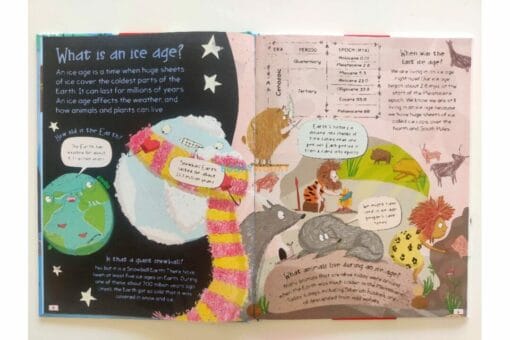 What is an ice age?
An ice age is a time when huge sheets
of ice cover the coldest parts of the
Earth. It can last for millions of years.
An ice age affects the weather, and
how animals and plants can live.
How old is the Earth?
The Earth has
existed for about
4.5 billion years!
Snowball Earth
lasted for about
Is that a giant snowball?
Yes, but it is a Snowball Earth! There have
been at least five ice ages on Earth. During
one of these, about 700 million years ago
(mya), the Earth got so cold that it was
covered in snow and ice.
ERA
PERIOD
EPOCH (MYA)
Cenozoic
Quaternary
Tertiary
Holocene 0.01
Pleistocene 2.6
Pliocene 5.3
Miocene 23.0
Oligocene 33.9
Eocene 55.8
When was the
last ice age?
We are living in an ice age
right now! Our ice age
began about 2.6 mya, at the
start of the Pleistocene
epoch. We know we are still
living in an ice age because
we have huge sheets of ice
called ice caps, over the
North and South Poles.
Earth's history is
divided into chunks of
time called eras and
periods. Each period is
then divided into epochs.
What animals live during an ice age?
Many animals that are alive today were around
when the Earth was much colder in the Pleistocene.
Today's dogs, including Siberian huskies, are
all descended from wild wolves.